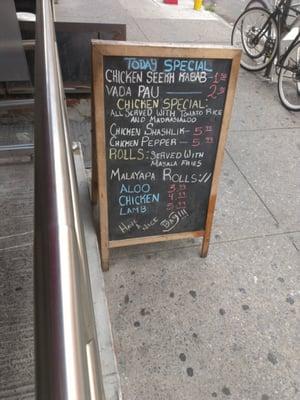 TODAY SPECIAL
CHICKEN SEEKH KABAB - 1.99
VADA PAU - 2.99
CHICKEN SPECIAL:
ALL SERVED WITH TOMATO RICE
AND MADRASALOO
CHICKEN SHASHLIK - 5.99
CHICKEN PEPPER - 5.99
ROLLS: SERVED WITH
MASALA FRIES
MALAYAPA ROLLS://
ALOO 3.99
CHICKEN 4.99
LAMB 5.99
HAVE A NICE DAY!!!